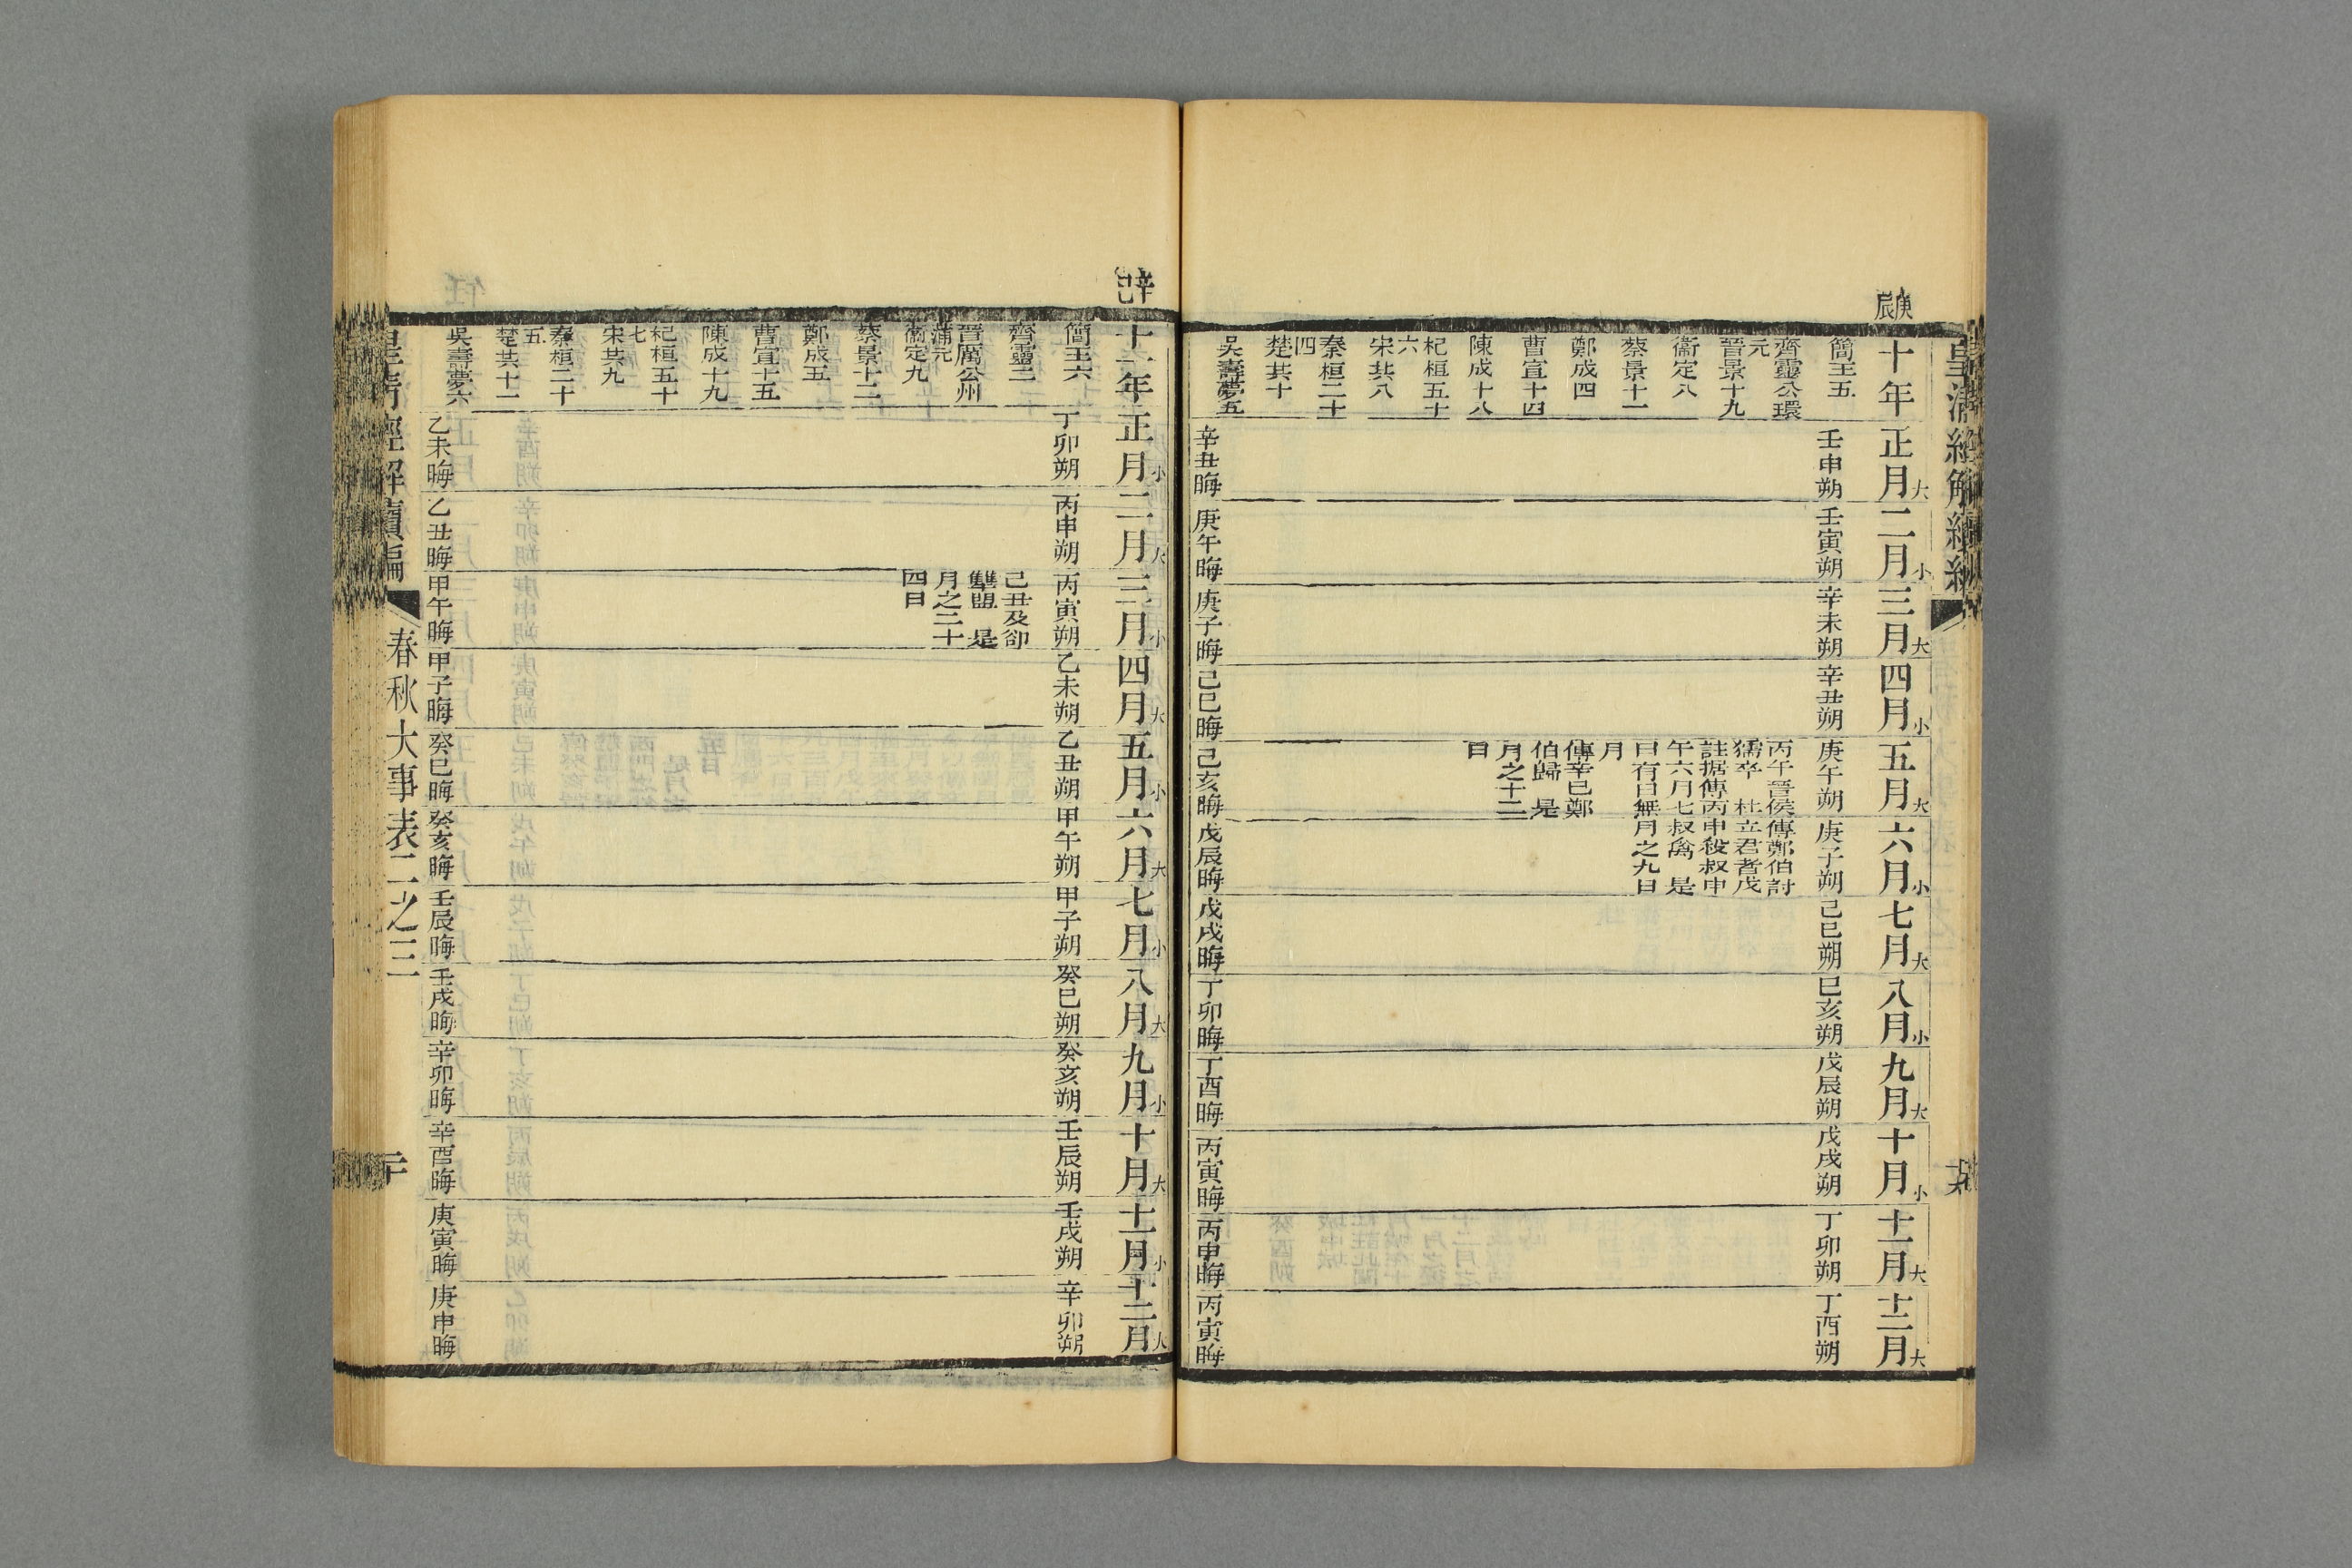 皇清經解續編
庚辰
十年
正月大
二月小
三月大
四月小
五月大
六月小
七月大
八月小
九月大
十月小
十一月大
十二月大
簡王五
壬申朔
壬寅朔
辛未朔
辛丑朔
庚午朔
庚子朔
己巳朔
己亥朔
戊辰朔
戊戌朔
丁卯朔
丁酉朔
齊靈公環
元
晉景十九
衞定八
蔡景十一
鄭成四
曹宣十四
陳成十八
杞桓五十
六
宋共八
秦桓二十
四
楚共十
吳壽夢五
丙午晉侯
獳卒 杜
註据傳丙
午六月七
日有日無
月
傳辛巳鄭
伯歸 是
月之十二
日
傳鄭伯討
立君者戊
申殺叔申
叔禽 是
月之九日
辛丑晦
庚午晦
庚子晦
己巳晦
己亥晦
戊辰晦
戊戌晦
丁卯晦
丁酉晦
丙寅晦
丙申晦
丙寅晦
辛巳
十一年
正月小
二月大
三月小
四月大
五月小
六月大
七月小
八月大
九月小
十月大
十一月小
十二月大
簡王六
丁卯朔
丙申朔
丙寅朔
乙未朔
乙丑朔
甲午朔
甲子朔
癸巳朔
癸亥朔
壬辰朔
壬戌朔
辛卯朔
齊靈二
晉厲公州
蒲元
衞定九
蔡景十二
鄭成五
曹宣十五
陳成十九
杞桓五十
七
宋共九
秦桓二十
五
楚共十一
吳壽夢六
己丑及郤
犨盟 是
月之二十
四日
乙未晦
乙丑晦
甲午晦
甲子晦
癸巳晦
癸亥晦
壬辰晦
壬戌晦
辛卯晦
辛酉晦
庚寅晦
庚申晦
皇清經解續編
春秋大事表二之三
二十